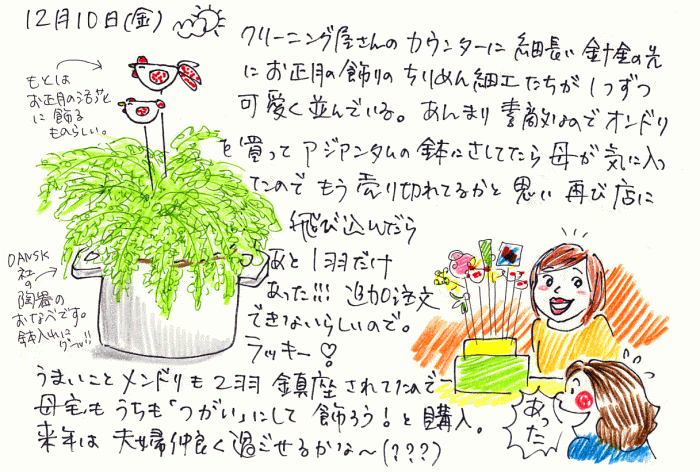 12月10日(金)
クリーニング屋さんのカウンターに細長い針金の先
にお正月の飾りのちりめん細工たちが1つずつ
可愛く並んでいる。あんまり素敵なのでオンドリ
を買ってアジアンタムの鉢にさしてたら母が気に入っ
たのでもう売り切れてるかと思い再び店に
飛び込んだら
あと1羽だけ
あった!!! 追加注文
できないらしいので。
ラッキー♡
うまいことメンドリも2羽鎮座されてたので
母宅もうちも「つがい」にして飾ろう!と購入。
来年は夫婦仲良く過ごせるかな〜(???)
もとは
お正月の活花
に飾る
ものらしい。
DANSK
社の
陶器の
おなべです。
鉢入れに
グー!!
あった